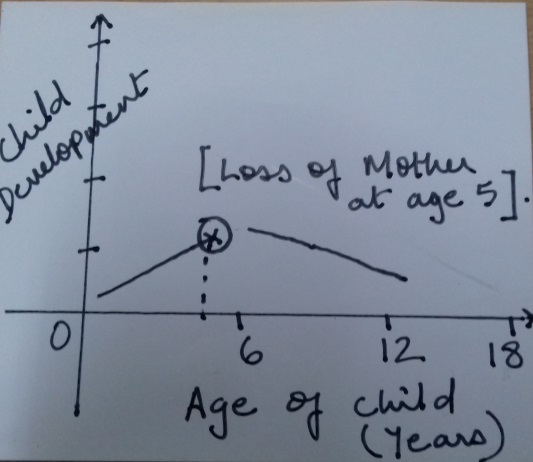 Child
Development
[Loss of Mother
at age 5].
0
6
12
18
Age of child
(Years)